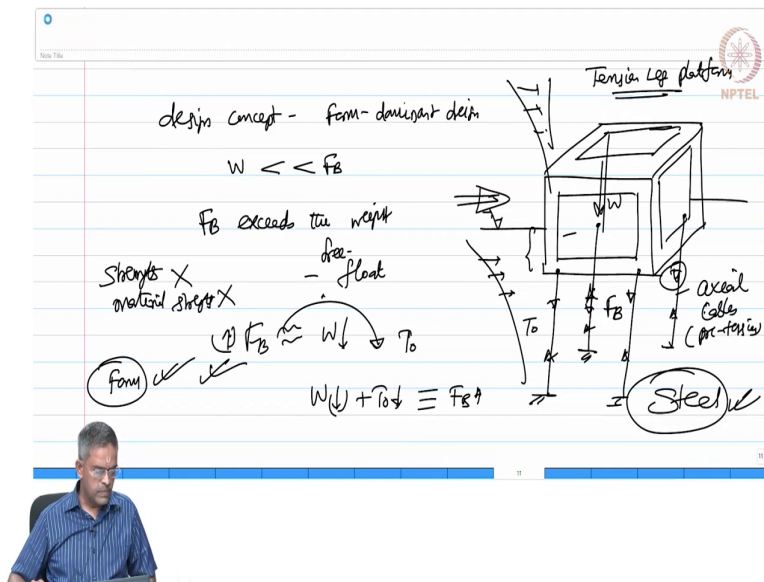 Note Title
NPTEL
Tension Leg platform
design concept - form-dominant design
W << FB
FB exceeds the weight
free-
- float
Strength X
material strength X
(↑) FB ≈ W↓ T0
Form ✓✓ ✓✓
W(↓) + T0↓ ≡ FB↑
W
FB
T0
axial
cables
(pre-tension)
Steel ✓
11
11